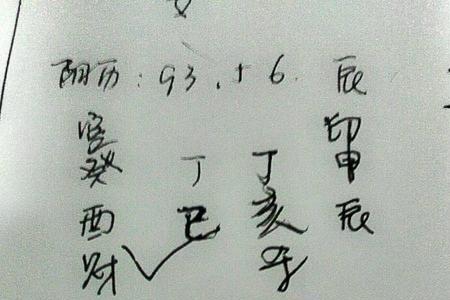 阳历：93.5.6. 辰
印
癸 丁 丁 甲
酉 巳 亥 辰
财